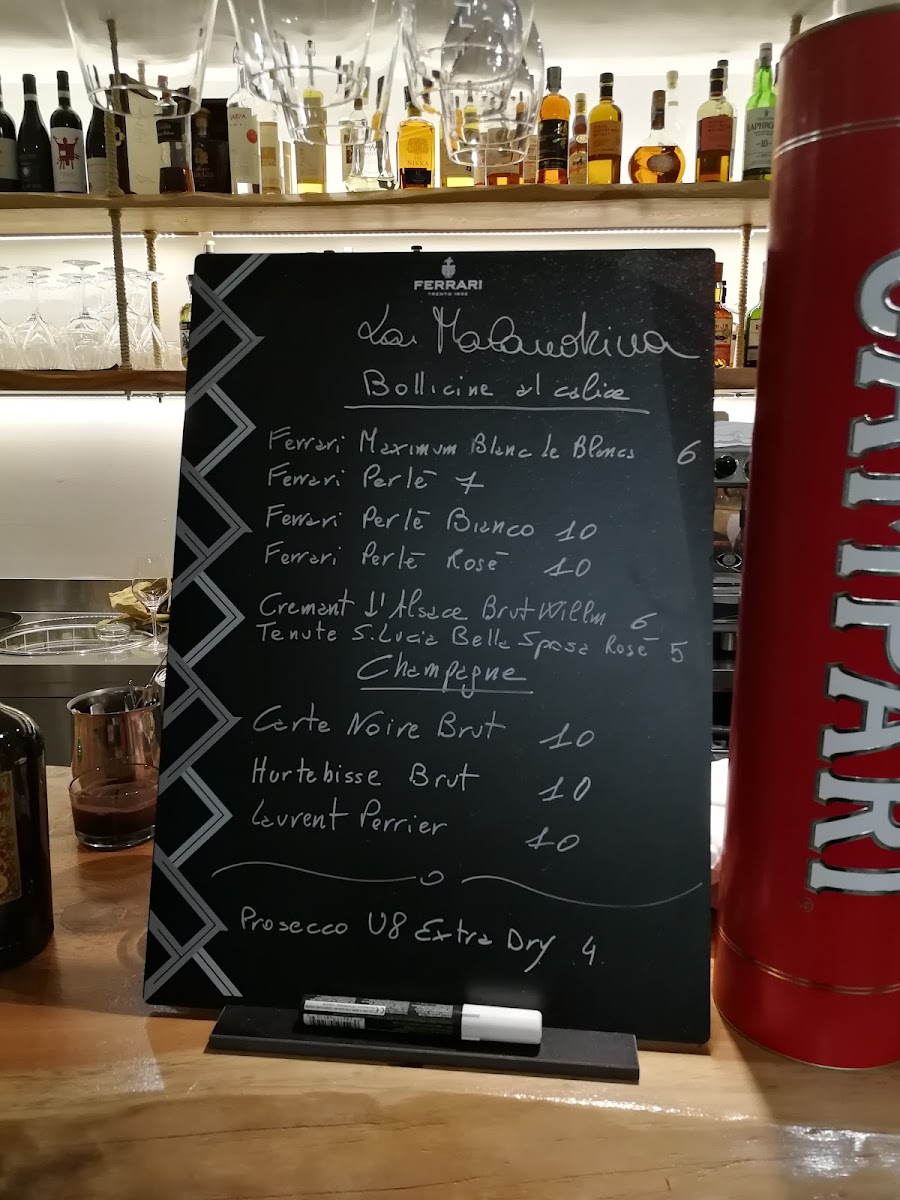 FERRARI
TRENTO 1902
La Malandrina
Bollicine al calice
Ferrari Maximum Blanc de Blancs 6
Ferrari Perlé 7
Ferrari Perlé Bianco 10
Ferrari Perlé Rosé 10
Cremant d'Alsace Brut Willm 6
Tenute S. Lucia Bella Sposa Rosé 5
Champagne
Carte Noire Brut 10
Hurtebisse Brut 10
Laurent Perrier 10
Prosecco U8 Extra Dry 4
CAMPARI
NIKKA
LAPHROAIG
10